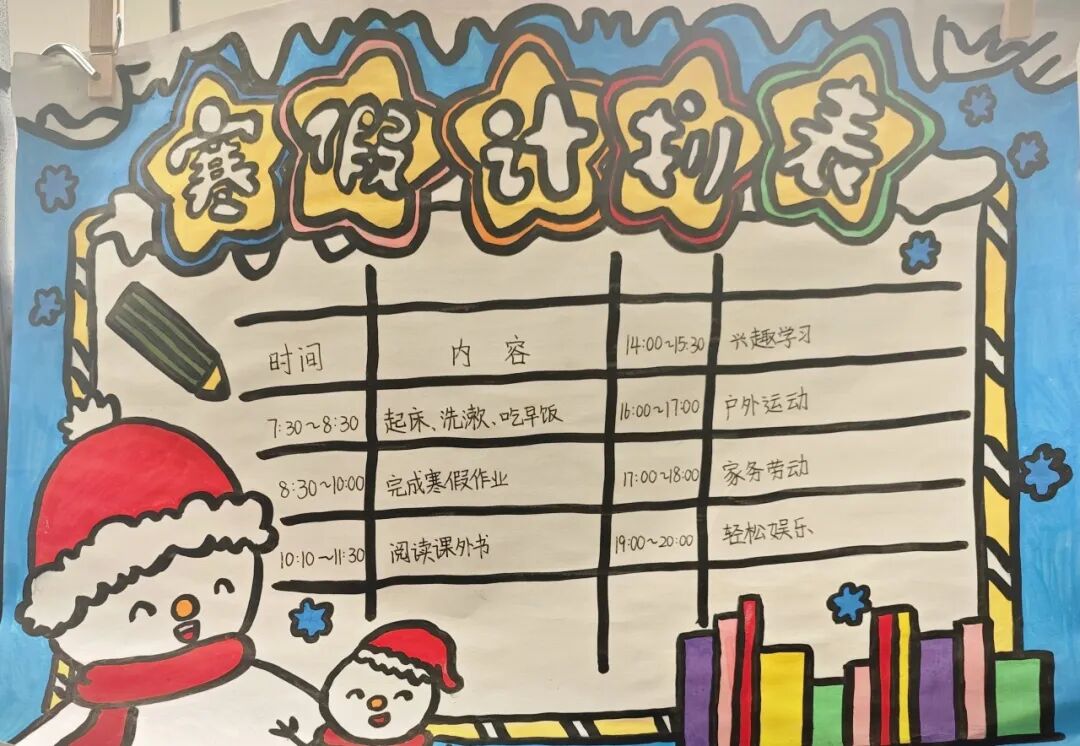 寒假计划表
时间 内容 14:00~15:30 兴趣学习
7:30~8:30 起床、洗漱、吃早饭 16:00~17:00 户外运动
8:30~10:00 完成寒假作业 17:00~18:00 家务劳动
10:10~11:30 阅读课外书 19:00~20:00 轻松娱乐